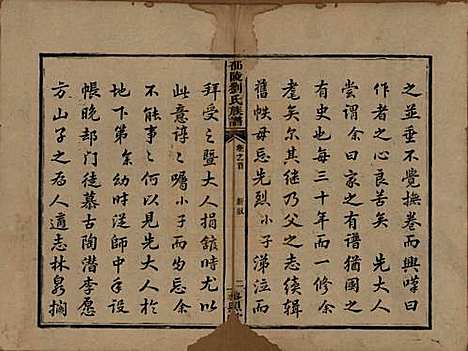 之並垂不覺撫卷而興嘆曰
作者之心良苦矣　先大人
嘗謂余曰家之有譜猶國之
有史也每三十年而一世余
耄矣尔其继乃父之志續辑
舊帙毋忘先烈小子涕泣而
邵陵劉氏族譜
卷之首
新敘
二
拜受之暨大人捐館時而
此意諄之囑小子無以
不能事之何以見先大人
地下余幼時從師中年設
帳晚却門徒慕古陶潛李愿
方山子之為人適志林泉擱